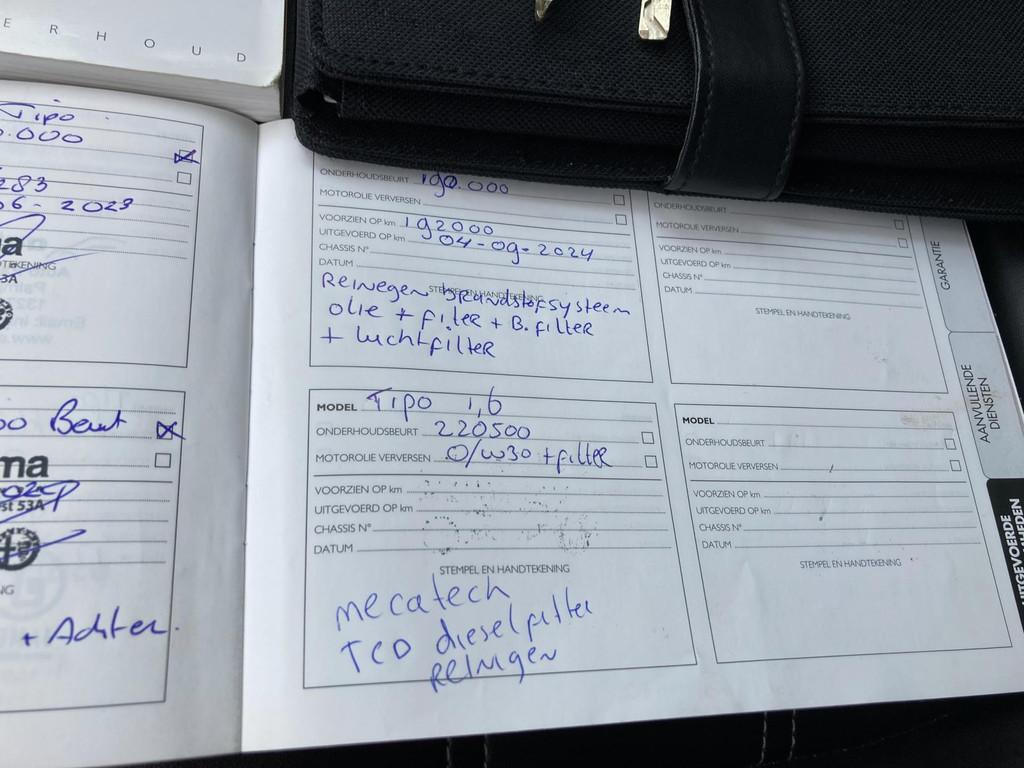 ERHOUD
Tipo
.000
283
06-2023
a
TEKENING
53A
Beurt
ma
st 53A
NG
+ Achter.
ONDERHOUDSBEURT 190.000
MOTOROLIE VERVERSEN
VOORZIEN OP km 192000
UITGEVOERD OP km 04-09-2024
CHASSIS N°
DATUM
STEMPEL EN HANDTEKENING
Reinegen brandstofsysteem
olie + filter + B.filter
+ luchtfilter
MODEL Tipo 1,6
ONDERHOUDSBEURT 220500
MOTOROLIE VERVERSEN O/W30 + filter
VOORZIEN OP km
UITGEVOERD OP km
CHASSIS N°
DATUM
STEMPEL EN HANDTEKENING
mecatech
TCD dieselfilter
reinigen
ONDERHOUDSBEURT
MOTOROLIE VERVERSEN
VOORZIEN OP km
UITGEVOERD OP km
CHASSIS N°
DATUM
STEMPEL EN HANDTEKENING
MODEL
ONDERHOUDSBEURT
MOTOROLIE VERVERSEN
VOORZIEN OP km
UITGEVOERD OP km
CHASSIS N°
DATUM
STEMPEL EN HANDTEKENING
GARANTIE
AANVULLENDE
DIENSTEN
UITGEVOERDE